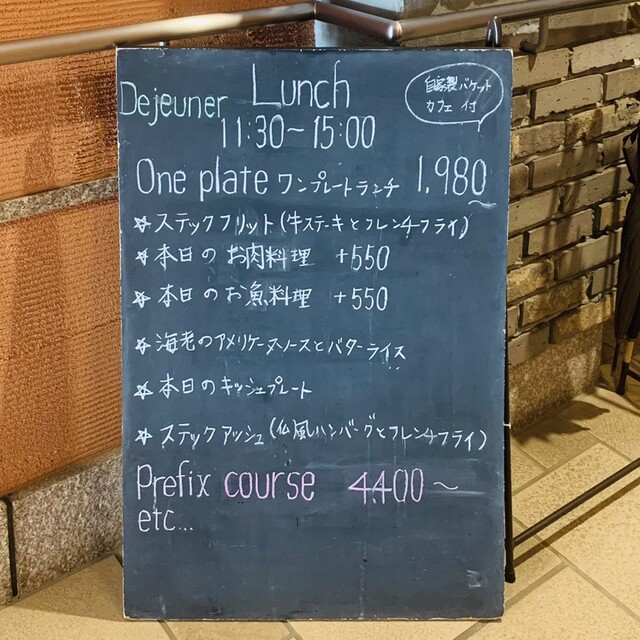 Dejeuner Lunch
11:30~15:00
自家製バケット
カフェ付
One plate ワンプレートランチ 1,980~
☆ステックフリット(牛ステーキとフレンチフライ)
☆本日のお肉料理 +550
☆本日のお魚料理 +550
☆海老のアメリケーヌソースとバターライス
☆本日のキッシュプレート
☆ステックアッシュ(仏風ハンバーグとフレンチフライ)
Prefix course 4400~
etc...